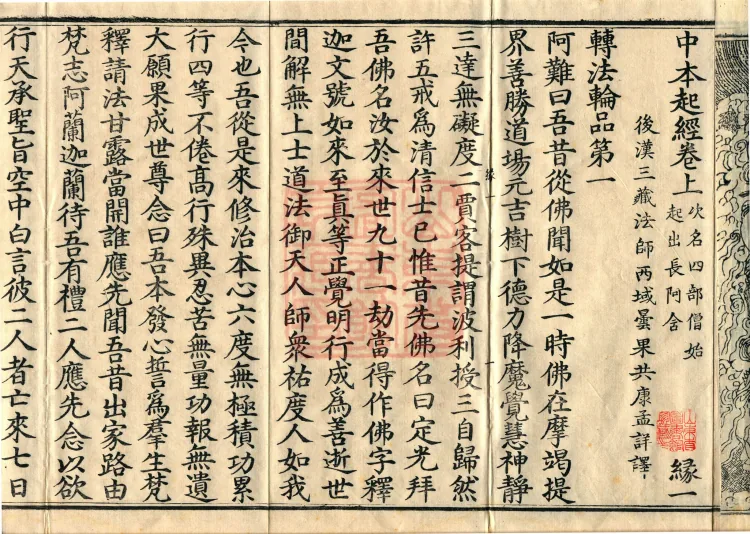 中本起經卷上 次名四部僧始起出長阿含 緣一
後漢三藏法師西域曇果共康孟詳譯
轉法輪品第一
阿難曰吾昔從佛聞如是一時佛在摩竭提
界善勝道場元吉樹下德力降魔覺慧神靜
三達無礙度二賈客提謂波利授三自歸然
許五戒爲清信士已惟昔先佛名曰定光拜
吾佛名汝於來世九十一劫當得作佛字釋
迦文號如來至眞等正覺明行成爲善逝世
間解無上士道法御天人師衆祐度人如我
今也吾從是來修治本心六度無極積功累
行四等不倦高行殊異忍苦無量功報無遺
大願果成世尊念曰吾本發心誓爲羣生梵
釋請法甘露當開誰應先聞吾昔出家路由
梵志阿蘭迦蘭待吾有禮二人應先念以欲
行天承聖旨空中白言彼二人者亡來七日